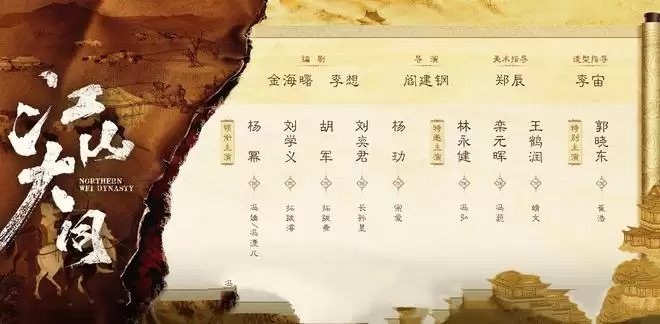 江山大同
NORTHERN
WEI DYNASTY
编剧
金海曙 李想
导演
阎建钢
美术指导
郑辰
造型指导
李宙
领衔主演
杨幂
刘学义
拓跋濬
胡军
拓跋焘
刘奕君
杨玏
宗爱
特邀主演
林永健
冯弘
栾元晖
王鹤润
特别主演
郭晓东
崔浩
冯